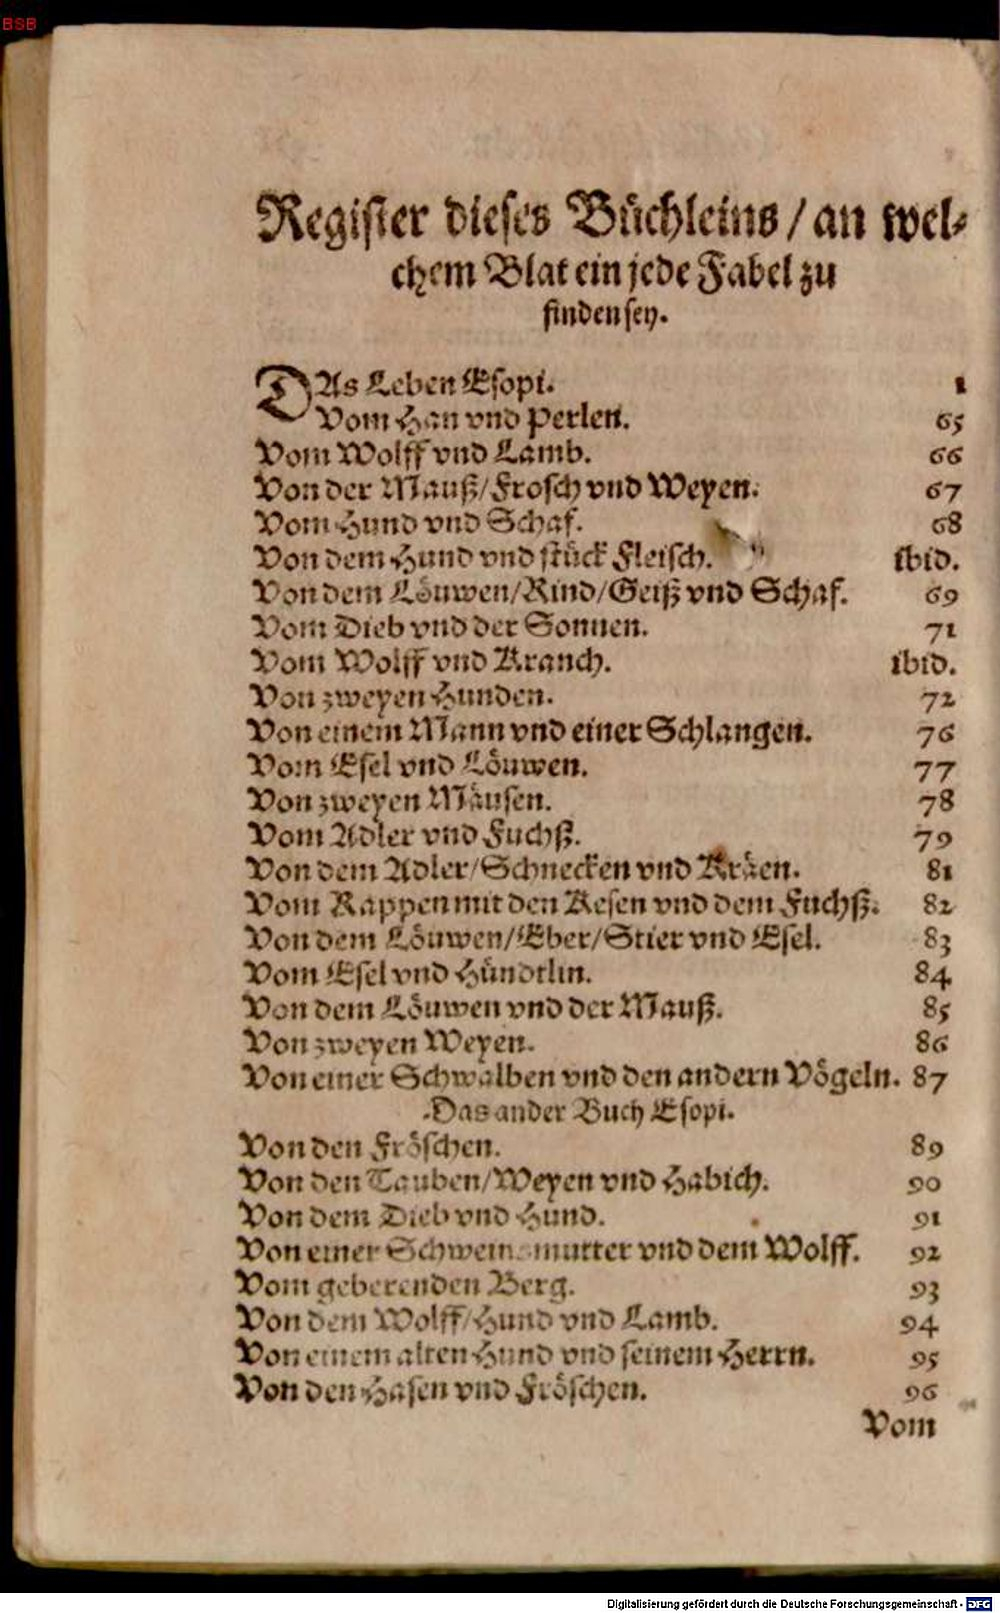 BSB
Register dieses Büchleins / an wel-
chem Blat ein jede Fabel zu
finden sey.
DAs Leben Esopi. 1
Vom Han vnd Perlen. 65
Vom Wolff vnd Lamb. 66
Von der Mauß/Frosch vnd Weyen. 67
Vom Hund vnd Schaf. 68
Von dem Hund vnd stück Fleisch. ibid.
Von dem Löuwen/Rind/Geiß vnd Schaf. 69
Vom Dieb vnd der Sonnen. 71
Vom Wolff vnd Kranch. ibid.
Von zweyen Hunden. 72
Von einem Mann vnd einer Schlangen. 76
Vom Esel vnd Löuwen. 77
Von zweyen Mäusen. 78
Vom Adler vnd Fuchß. 79
Von dem Adler/Schnecken vnd Kräen. 81
Vom Rappen mit den Kesen vnd dem Fuchß. 82
Von dem Löuwen/Eber/Stier vnd Esel. 83
Vom Esel vnd Hündtlin. 84
Von dem Löuwen vnd der Mauß. 85
Von zweyen Weyen. 86
Von einer Schwalben vnd den andern Vögeln. 87
Das ander Buch Esopi.
Von den Fröschen. 89
Von den Tauben/Weyen vnd Habich. 90
Von dem Dieb vnd Hund. 91
Von einer Schweinsmutter vnd dem Wolff. 92
Vom geberenden Berg. 93
Von dem Wolff/Hund vnd Lamb. 94
Von einem alten Hund vnd seinem Herrn. 95
Von den Hasen vnd Fröschen. 96
Vom
Digitalisierung gefördert durch die Deutsche Forschungsgemeinschaft - DFG